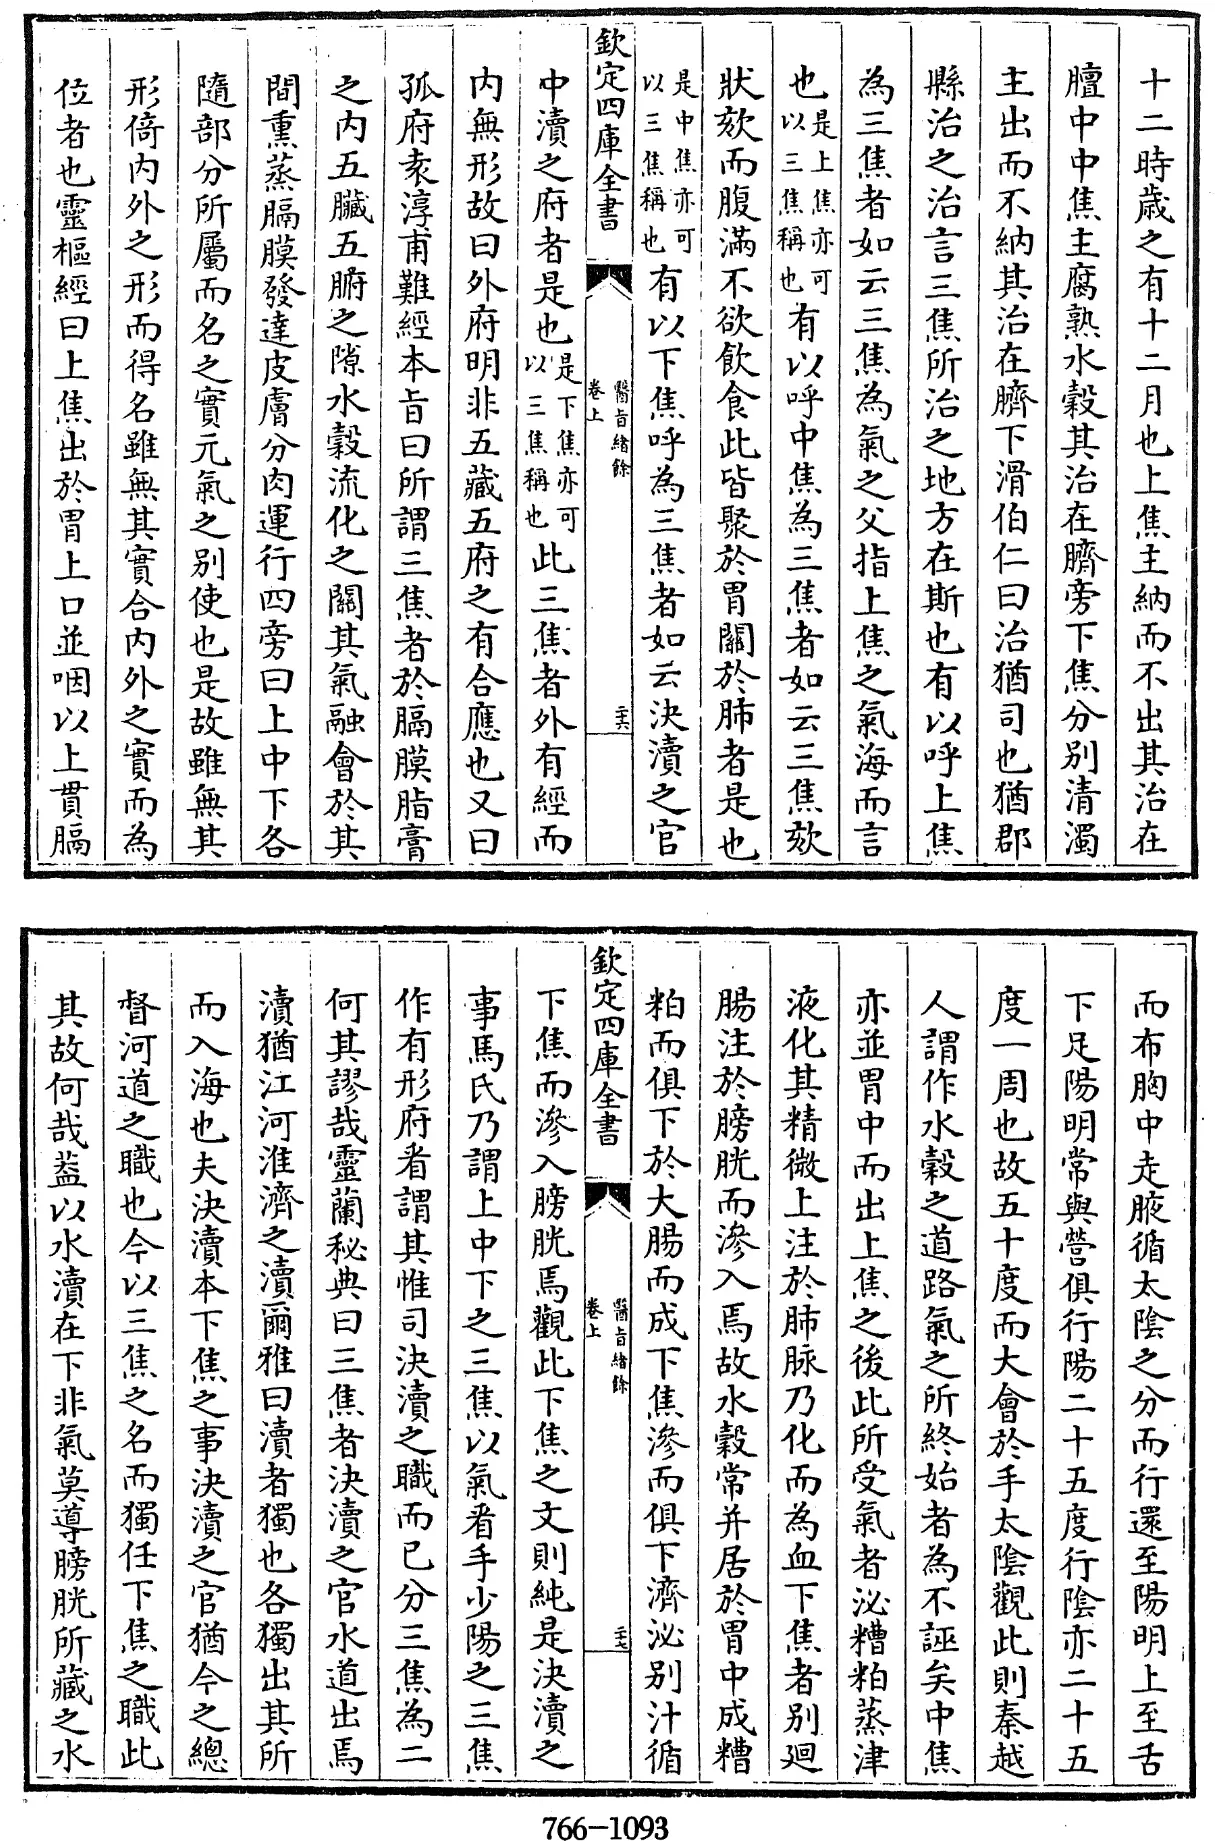 十二時歳之有十二月也上焦主納而不出其治在
膻中中焦主腐熟水穀其治在臍旁下焦分别清濁
主出而不納其治在臍下滑伯仁曰治猶司也猶郡
縣治之治言三焦所治之地方在斯也有以呼上焦
為三焦者如云三焦為氣之父指上焦之氣海而言
也是上焦亦可以三焦稱也有以呼中焦為三焦者如云三焦欬
狀欬而腹滿不欲飲食此皆聚於胃關於肺者是也
是中焦亦可以三焦稱也有以下焦呼為三焦者如云決瀆之官
欽定四庫全書
醫旨緒餘
卷上
二十六
中瀆之府者是也是下焦亦可以三焦稱也此三焦者外有經而
内無形故曰外府明非五藏五府之有合應也又曰
孤府袁淳甫難經本旨曰所謂三焦者於膈膜脂膏
之内五臟五腑之隙水穀流化之關其氣融會於其
間熏蒸膈膜發達皮膚分肉運行四旁曰上中下各
隨部分所屬而名之實元氣之别使也是故雖無其
形倚内外之形而得名雖無其實合内外之實而為
位者也靈樞經曰上焦出於胃上口並咽以上貫膈
而布胸中走腋循太陰之分而行還至陽明上至舌
下足陽明常與營俱行陽二十五度行陰亦二十五
度一周也故五十度而大會於手太陰觀此則秦越
人謂作水穀之道路氣之所終始者為不誣矣中焦
亦並胃中而出上焦之後此所受氣者泌糟粕蒸津
液化其精微上注於肺脉乃化而為血下焦者别廻
腸注於膀胱而滲入焉故水穀常并居於胃中成糟
粕而俱下於大腸而成下焦滲而俱下濟泌别汁循
欽定四庫全書
醫旨緒餘
卷上
二十七
下焦而滲入膀胱焉觀此下焦之文則純是決瀆之
事馬氏乃謂上中下之三焦以氣看手少陽之三焦
作有形府看謂其惟司決瀆之職而已分三焦為二
何其謬哉靈蘭秘典曰三焦者決瀆之官水道出焉
瀆猶江河淮濟之瀆爾雅曰瀆者獨也各獨出其所
而入海也夫決瀆本下焦之事決瀆之官猶今之總
督河道之職也今以三焦之名而獨任下焦之職此
其故何哉葢以水瀆在下非氣莫導膀胱所藏之水
766-1093